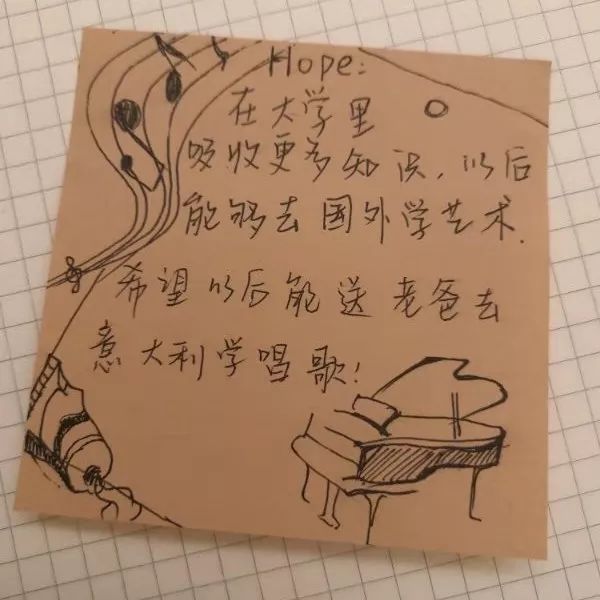 Hope:
在大学里
吸收更多知识,以后
能够去国外学艺术.
希望以后能送老爸去
意大利学唱歌!